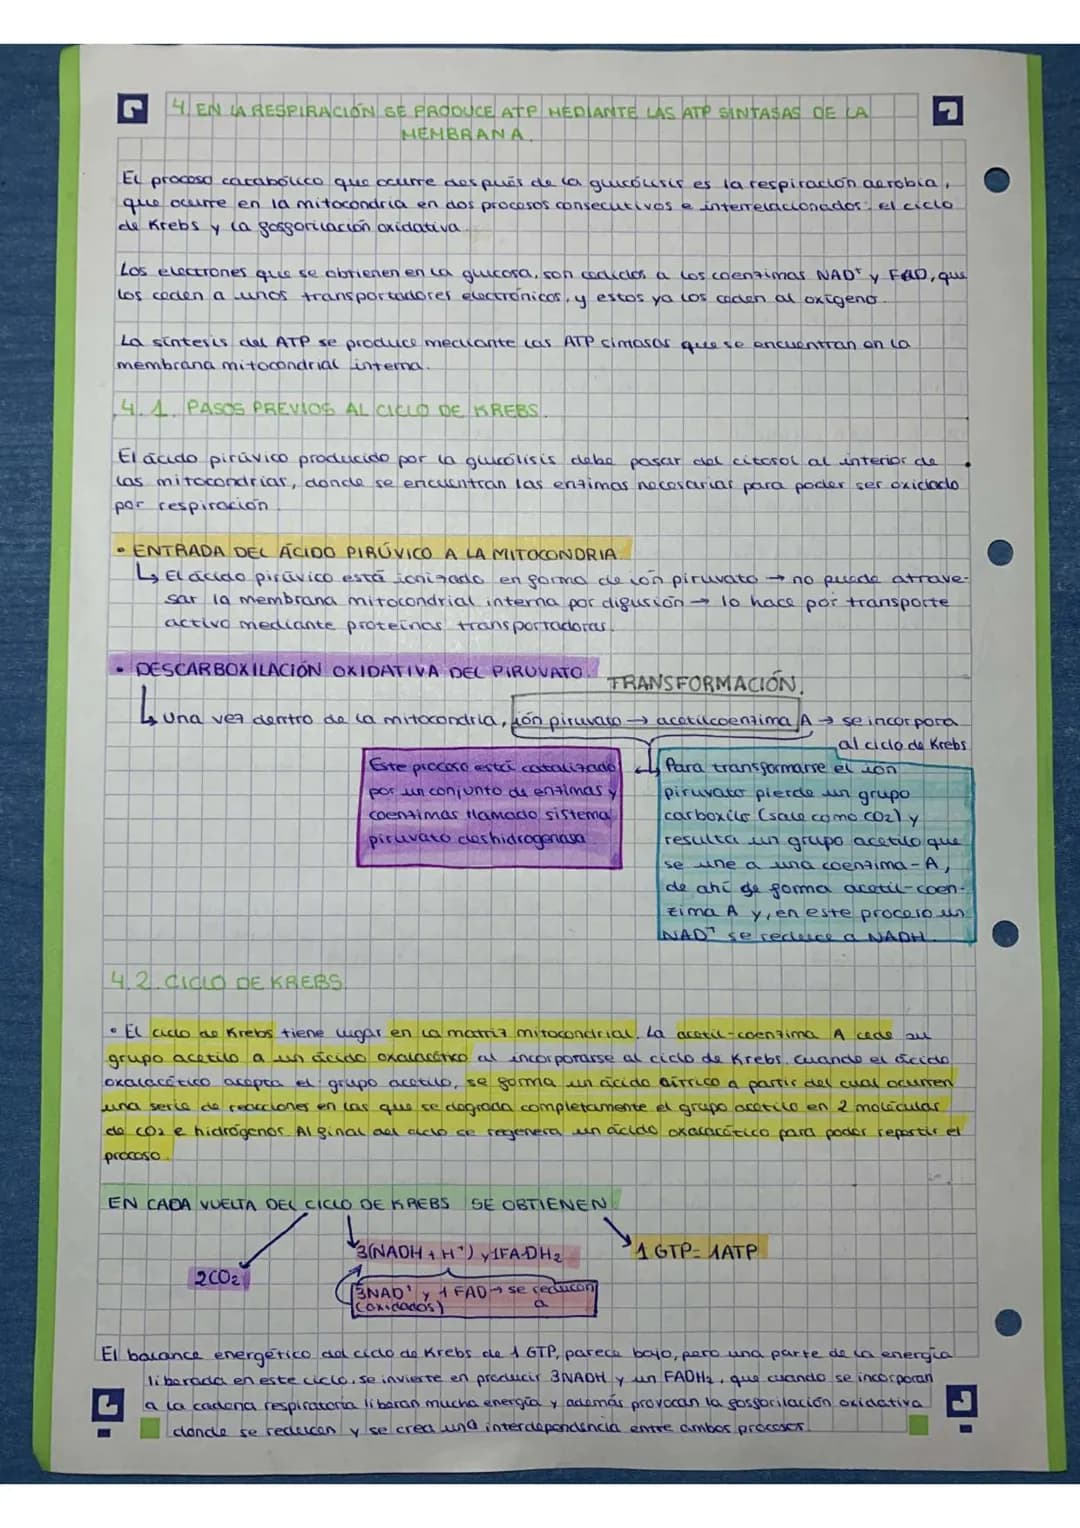 4. EN LA RESPIRACIÓN SE PRODUCE ATP MEDIANTE LAS ATP SINTASAS DE LA
MEMBRANA.
El proceso catabólico que ocurre después de la glucólisis es la respiración aerobia,
que ocurre en la mitocondria en dos procesos consecutivos e interrelacionados: el ciclo
de Krebs y la fosforilación oxidativa.
Los electrones que se obtienen en la glucosa, son cedidos a los coenzimas NAD⁺ y FAD, que
los ceden a unos transportadores electrónicos, y estos ya los ceden al oxígeno.
La síntesis del ATP se produce mediante las ATP cimasas que se encuentran en la
membrana mitocondrial interna.
4.1. PASOS PREVIOS AL CICLO DE KREBS.
El ácido pirúvico producido por la glucólisis debe pasar del citosol al interior de
las mitocondrias, donde se encuentran las enzimas necesarias para poder ser oxidado
por respiración.
• ENTRADA DEL ÁCIDO PIRÚVICO A LA MITOCONDRIA.
↳ El ácido pirúvico está ionizado en forma de ión piruvato → no puede atrave-
sar la membrana mitocondrial interna por difusión → lo hace por transporte
activo mediante proteínas transportadoras.
• DESCARBOXILACIÓN OXIDATIVA DEL PIRUVATO.
TRANSFORMACIÓN.
↳ Una vez dentro de la mitocondria, ión piruvato → acetilcoenzima A → se incorpora
al ciclo de Krebs
Este proceso está catalizado
por un conjunto de enzimas y
coenzimas llamado sistema
piruvato deshidrogenasa
Para transformarse el ión
piruvato pierde un grupo
carboxilo (sale como CO2) y
resulta un grupo acetilo que
se une a una coenzima-A,
de ahí se forma acetil-coen-
zima A y, en este proceso un
NAD⁺ se reduce a NADH.
4.2. CICLO DE KREBS.
• El ciclo de Krebs tiene lugar en la matriz mitocondrial. La acetil-coenzima A cede su
grupo acetilo a un ácido oxalacético al incorporarse al ciclo de Krebs. Cuando el ácido
oxalacético acepta el grupo acetilo, se forma un ácido cítrico a partir del cual ocurren
una serie de reacciones en las que se degrada completamente el grupo acetilo en 2 moléculas
de CO2 e hidrógenos. Al final del ciclo se regenera un ácido oxalacético para poder repetir el
proceso.
EN CADA VUELTA DEL CICLO DE KREBS SE OBTIENEN
3(NADH + H⁺) y 1FADH2
1 GTP = 1ATP
2CO2
3NAD⁺ y 1 FAD → se reducen
(oxidados) a
El balance energético del ciclo de Krebs de 1 GTP, parece bajo, pero una parte de la energía
liberada en este ciclo, se invierte en producir 3NADH y un FADH2, que cuando se incorporan
a la cadena respiratoria liberan mucha energía y además provocan la fosforilación oxidativa
donde se reducen y se crea una interdependencia entre ambos procesos.